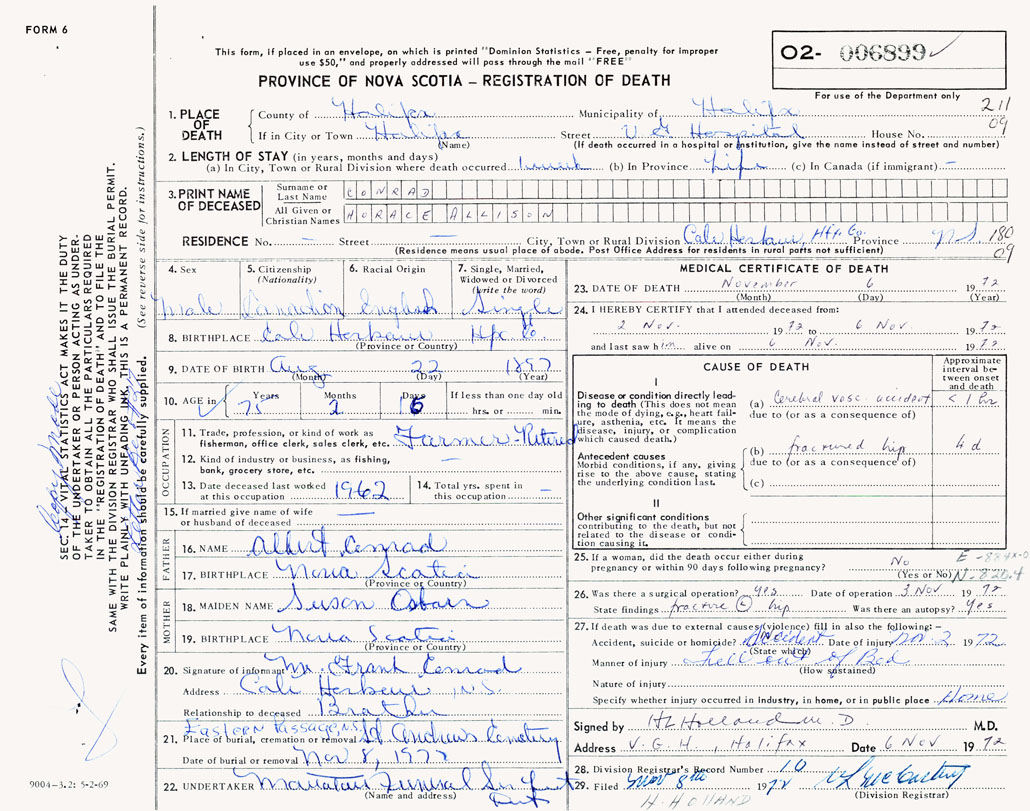 FORM 6
This form, if placed in an envelope, on which is printed "Dominion Statistics – Free, penalty for improper
use $50," and properly addressed will pass through the mail "FREE"
PROVINCE OF NOVA SCOTIA – REGISTRATION OF DEATH
O2- 006899
For use of the Department only
211
09
1. PLACE OF DEATH
County of Halifax Municipality of Halifax
If in City or Town Halifax Street V G Hospital House No.
(Name) (If death occurred in a hospital or institution, give the name instead of street and number)
2. LENGTH OF STAY (in years, months and days)
(a) In City, Town or Rural Division where death occurred 1 week (b) In Province Life (c) In Canada (if immigrant) –
3. PRINT NAME OF DECEASED
Surname or Last Name CONRAD
All Given or Christian Names HORACE ALLISON
RESIDENCE No. – Street – City, Town or Rural Division Cole Harbour, Hfx. Co. Province N.S. 180
09
(Residence means usual place of abode. Post Office Address for residents in rural parts not sufficient)
4. Sex
Male
5. Citizenship (Nationality)
Canadian
6. Racial Origin
English
7. Single, Married, Widowed or Divorced (write the word)
Single
8. BIRTHPLACE Cole Harbour Hfx Co.
(Province or Country)
9. DATE OF BIRTH Aug 22 1897
(Month) (Day) (Year)
10. AGE in Years Months Days If less than one day
75 2 hrs. or min.
OCCUPATION
11. Trade, profession, or kind of work as
fisherman, office clerk, sales clerk, etc. Farmer-Retired
12. Kind of industry or business, as fishing,
bank, grocery store, etc. –
13. Date deceased last worked
at this occupation 1962
14. Total yrs. spent in
this occupation –
15. If married give name of wife
or husband of deceased –
FATHER
16. NAME Albert Conrad
17. BIRTHPLACE Nova Scotia
(Province or Country)
MOTHER
18. MAIDEN NAME Susan Osborn
19. BIRTHPLACE Nova Scotia
(Province or Country)
20. Signature of informant Mr. Grant Conrad
Address Cole Harbour, N.S.
Relationship to deceased Brother
Eastern Passage, N.S.
21. Place of burial, cremation or removal St Andrews Cemetery
Date of burial or removal Nov 8, 1972
22. UNDERTAKER
(Name and address)
MEDICAL CERTIFICATE OF DEATH
23. DATE OF DEATH November 6 1972
(Month) (Day) (Year)
24. I HEREBY CERTIFY that I attended deceased from:
2 Nov. 1972 to 6 Nov 1972
and last saw him alive on 6 Nov. 1972
CAUSE OF DEATH
Approximate interval between onset and death
I
Disease or condition directly leading to death (This does not mean the mode of dying, e.g., heart failure, asthenia, etc. It means the disease, injury, or complication which caused death.)
(a) Cerebral vasc. accident < 1 hr
due to (or as a consequence of)
Antecedent causes
Morbid conditions, if any, giving rise to the above cause, stating the underlying condition last.
(b) fractured hip 4 d
due to (or as a consequence of)
(c)
II
Other significant conditions
contributing to the death, but not related to the disease or condition causing it.
25. If a woman, did the death occur either during
pregnancy or within 90 days following pregnancy? No
(Yes or No)
26. Was there a surgical operation? yes Date of operation 3 Nov 1972
State findings fracture hip Was there an autopsy? yes
27. If death was due to external causes (violence) fill in also the following:–
Accident, suicide or homicide? Accident Date of injury Nov. 2 1972
(State which)
Manner of injury Fell out of Bed
(How sustained)
Nature of injury
Specify whether injury occurred in industry, in home, or in public place Home
Signed by HL Holland M.D M.D.
Address V.G.H., Halifax Date 6 Nov 1972
28. Division Registrar's Record Number 10
29. Filed Nov 8th 1972
(Division Registrar)
H. HOLLAND
SEC. 14 – VITAL STATISTICS ACT MAKES IT THE DUTY
OF THE UNDERTAKER OR PERSON ACTING AS UNDER-
TAKER TO OBTAIN ALL THE PARTICULARS REQUIRED
IN THE "REGISTRATION OF DEATH" AND TO FILE THE
SAME WITH THE DIVISION REGISTRAR WHO SHALL ISSUE THE BURIAL PERMIT.
WRITE PLAINLY WITH UNFADING INK, THIS IS A PERMANENT RECORD.
Every item of information should be carefully supplied. (See reverse side for instructions.)
9004-3.2: 5-2-69